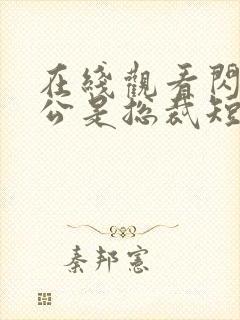 在綫觀看閃
公是總裁短
秦邦憲